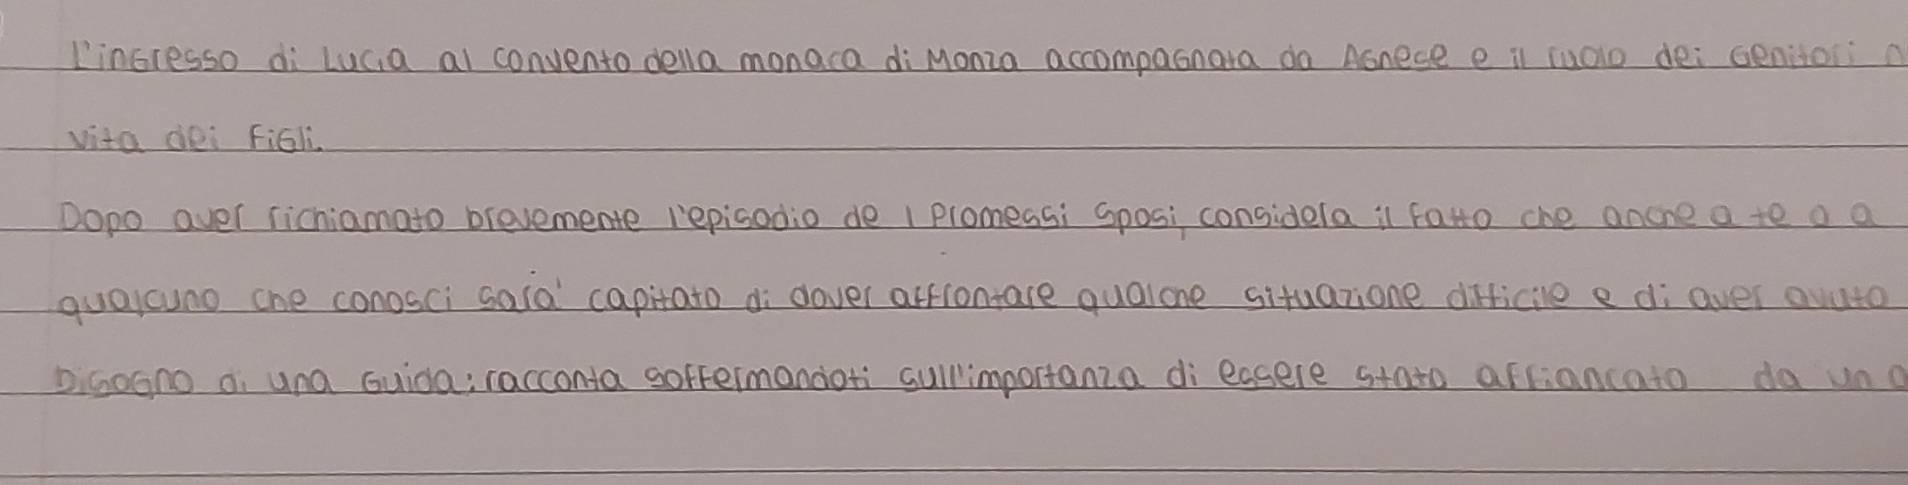 L'ingresso di Lucia al convento della monaca di Monza accompagnata da Agnese e il ruolo dei genitori
vita dei figli.
Dopo aver richiamato brevemente l'episodio de I Promessi Sposi, considera il fatto che anche a te o a
qualcuno che conosci sarà capitato di dover affrontare qualche situazione difficile e di aver avuto
bisogno di una guida: racconta soffermandoti sull'importanza di essere stato affiancato da un